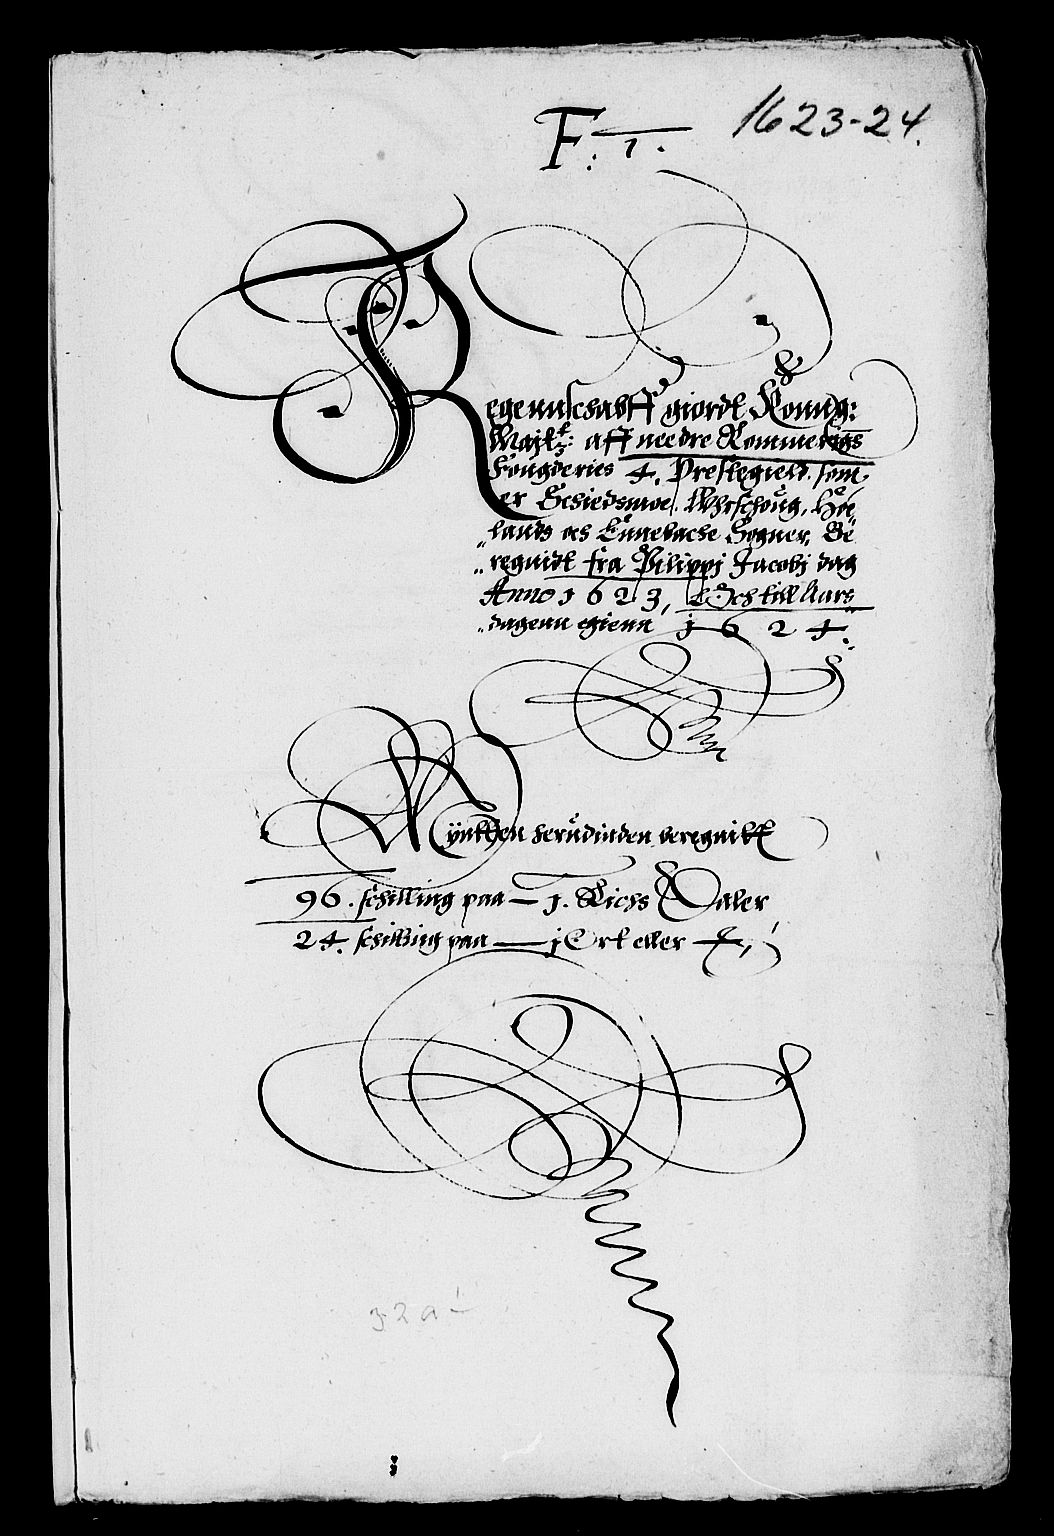 1623-24.
F: 1.
Regennschabff giordt Konng:
Majtz: aff needre Rommerigs
Fougderies 4. Prestegield. som
er Schiedsmoe, Whrschoug, Höe
lands och Ennebache Sogner, Be
regnidt fra Philippj Jacobj dag
Anno 1623, Och till Aars
dagenn egienn 1624.
Myntten herudinden beregnitt
96. schilling paa — 1. Richs Daler
24. schilling paa — j Ort eller
32a